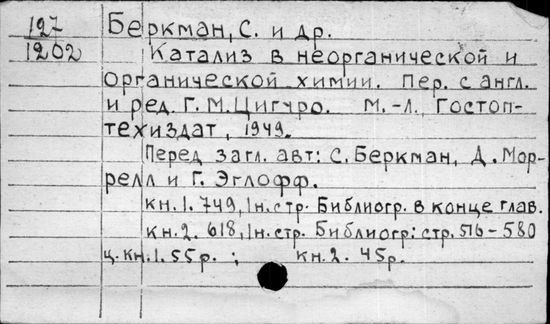 127 Беркман, С. и др.
1202 Катализ в неорганической и
органической химии. Пер. с англ.
и ред. Г. М. Цигуро. М.-Л., Гостоп-
техиздат, 1949.
Перед загл. авт: С. Беркман, Д. Мор-
релл и Г. Эглофф.
кн. 1. 749, 1н. стр. Библиогр. в конце глав.
кн. 2. 618, 1н. стр. Библиогр: стр. 516-580
ц. кн. 1. 55р. ; кн. 2. 45р.